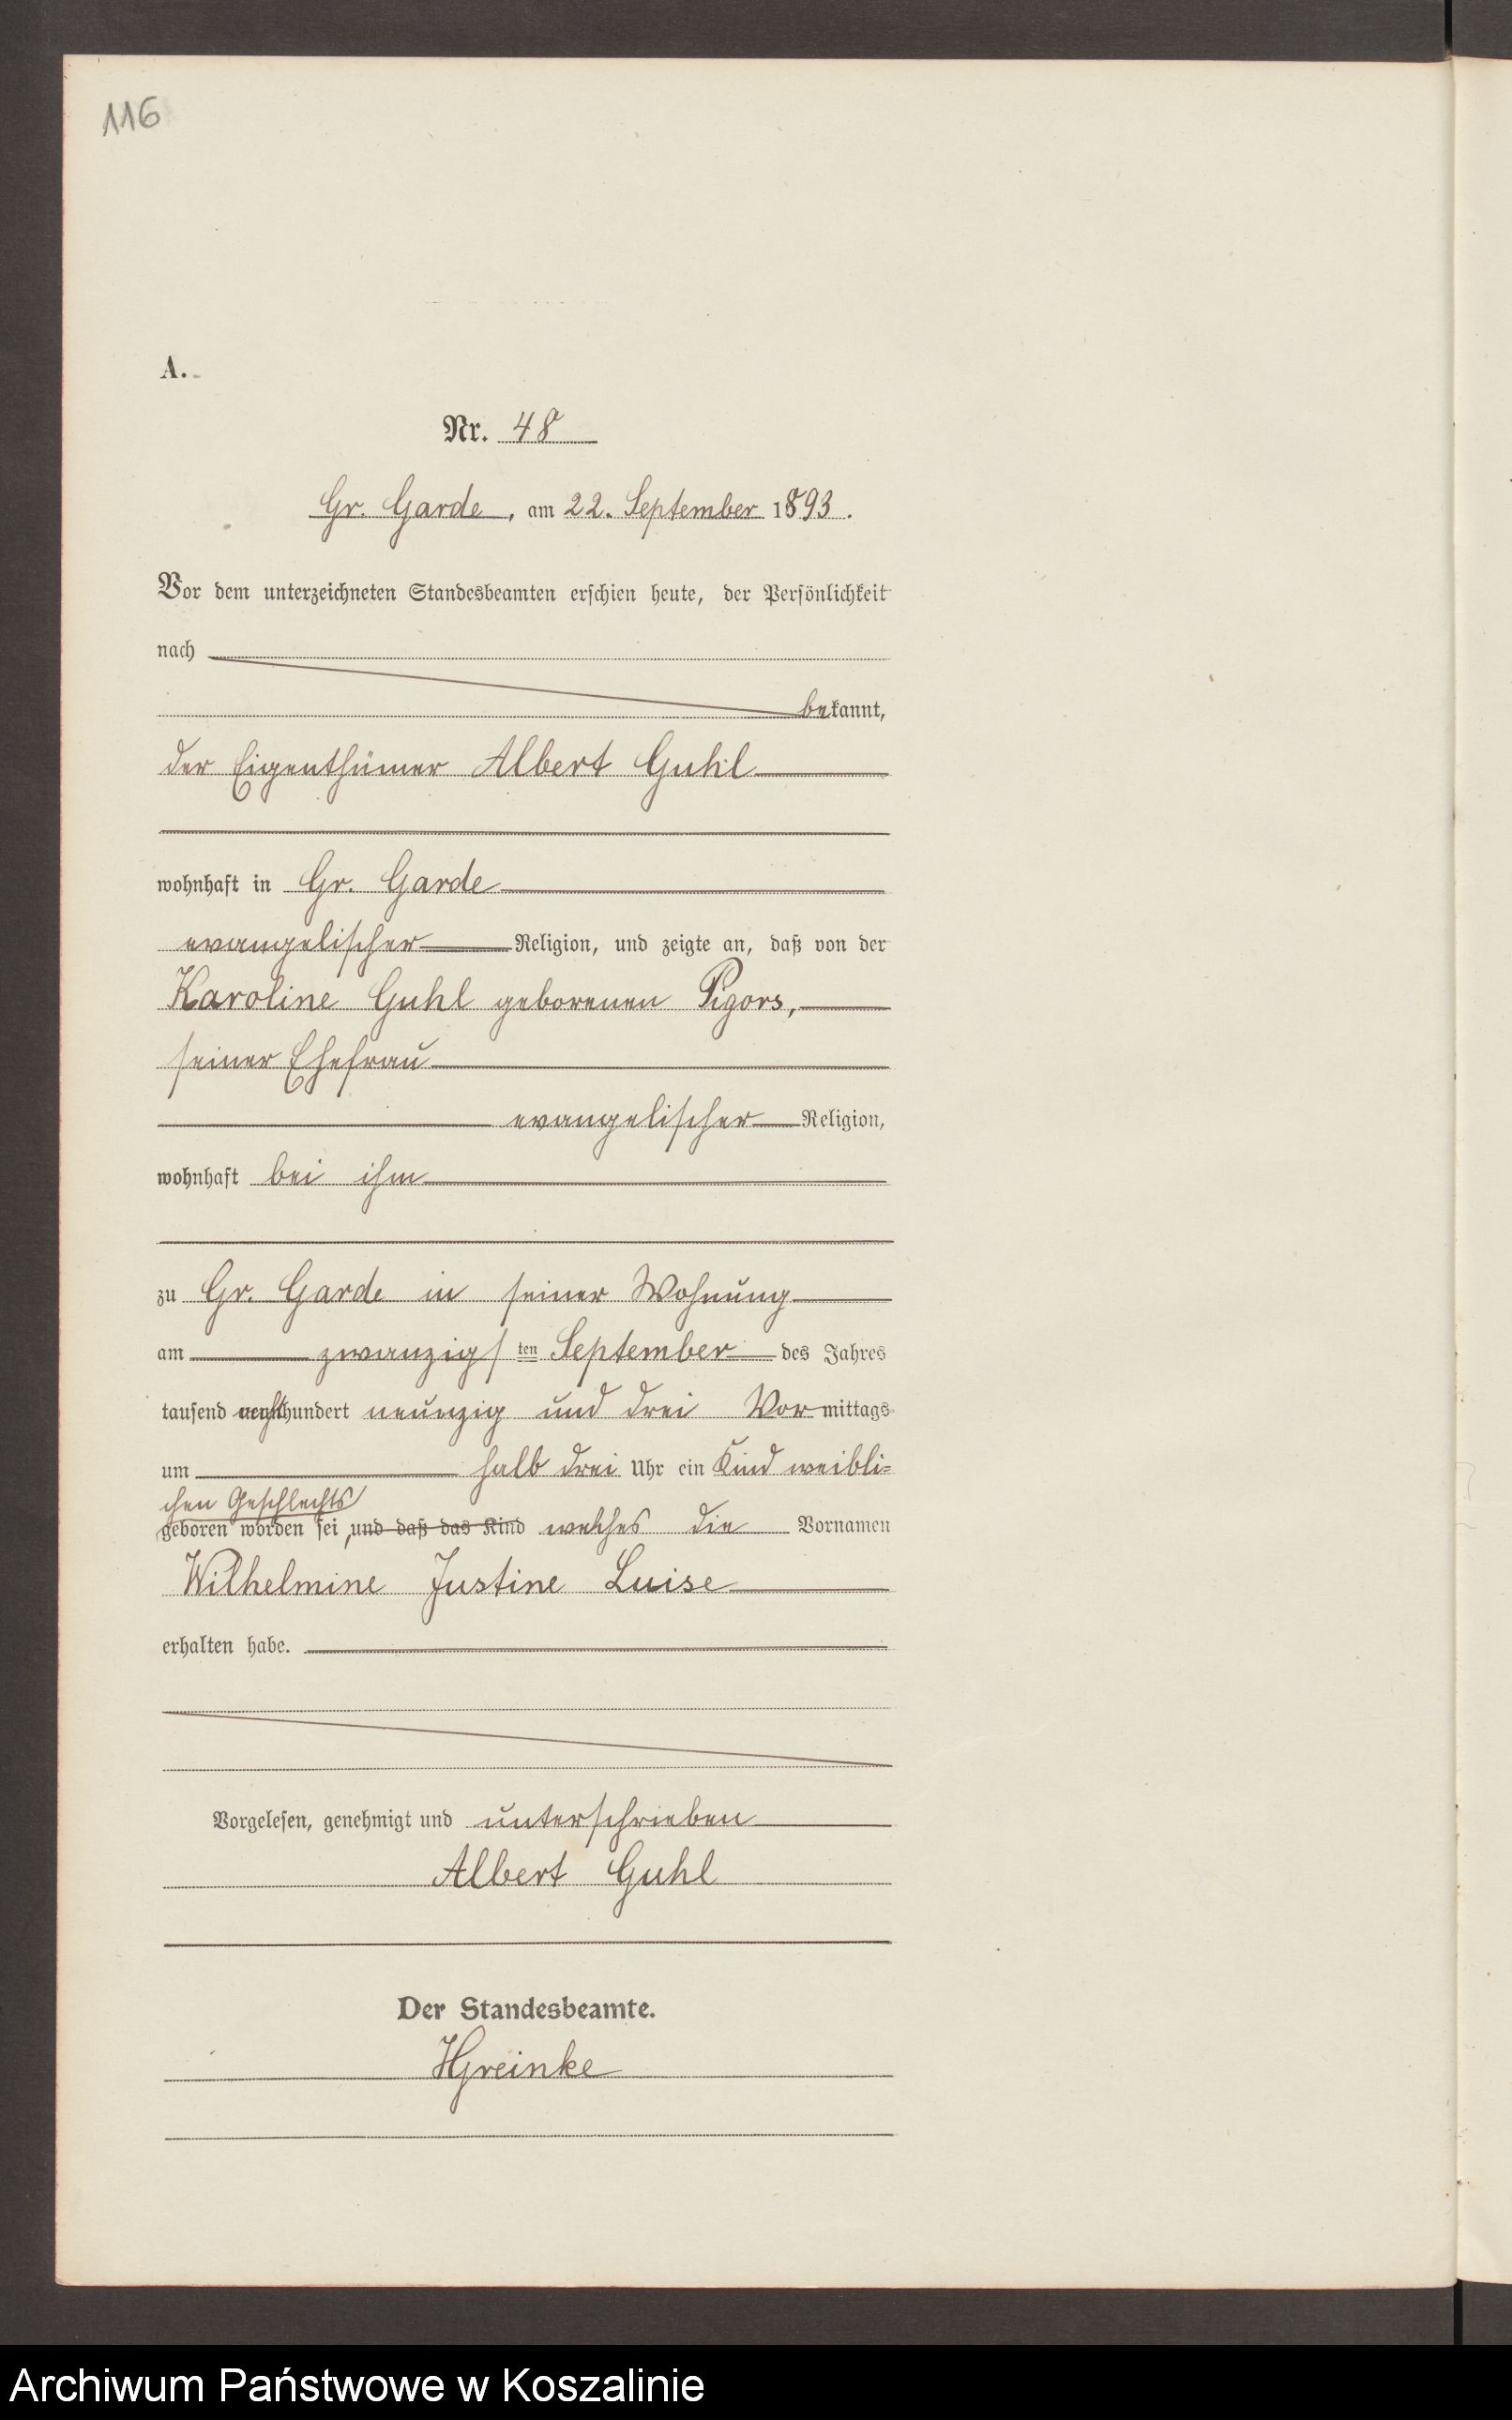 116
A.
Nr. 48
Gr. Garde, am 22. September 1893.
Vor dem unterzeichneten Standesbeamten erschien heute, der Persönlichkeit
nach
bekannt,
der Eigenthümer Albert Guhl
wohnhaft in Gr. Garde
evangelischer Religion, und zeigte an, daß von der
Karoline Guhl geborenen Pigors,
seiner Ehefrau
evangelischer Religion,
wohnhaft bei ihm
zu Gr. Garde in seiner Wohnung
am zwanzigsten September des Jahres
tausend achthundert neunzig und drei Vormittags
um halb drei Uhr ein Kind weibli=
chen Geschlechts
geboren worden sei, und daß das Kind welches die Vornamen
Wilhelmine Justine Luise
erhalten habe.
Vorgelesen, genehmigt und unterschrieben
Albert Guhl
Der Standesbeamte.
HGreinke
Archiwum Państwowe w Koszalinie